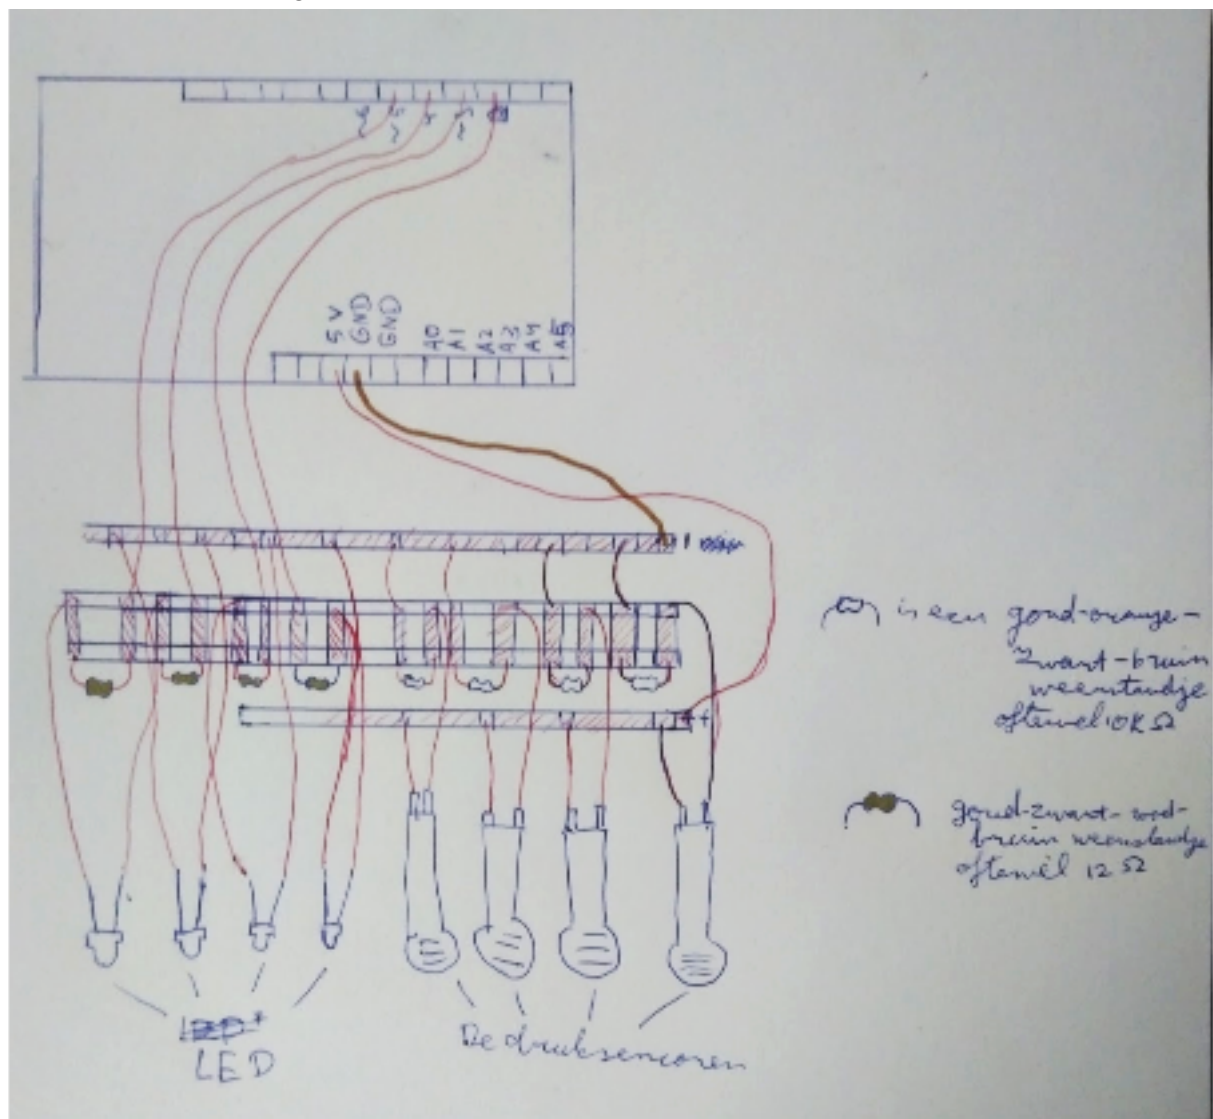 ~6 ~5 4 ~3 2
5V GND GND A0 A1 A2 A3 A4 A5
+
is een goud-orange-
zwart-bruin
weerstandje
oftewel 10K Ω
goud-zwart-rood-
bruin weerstandje
oftewel 12 Ω
LED
De druksencoren